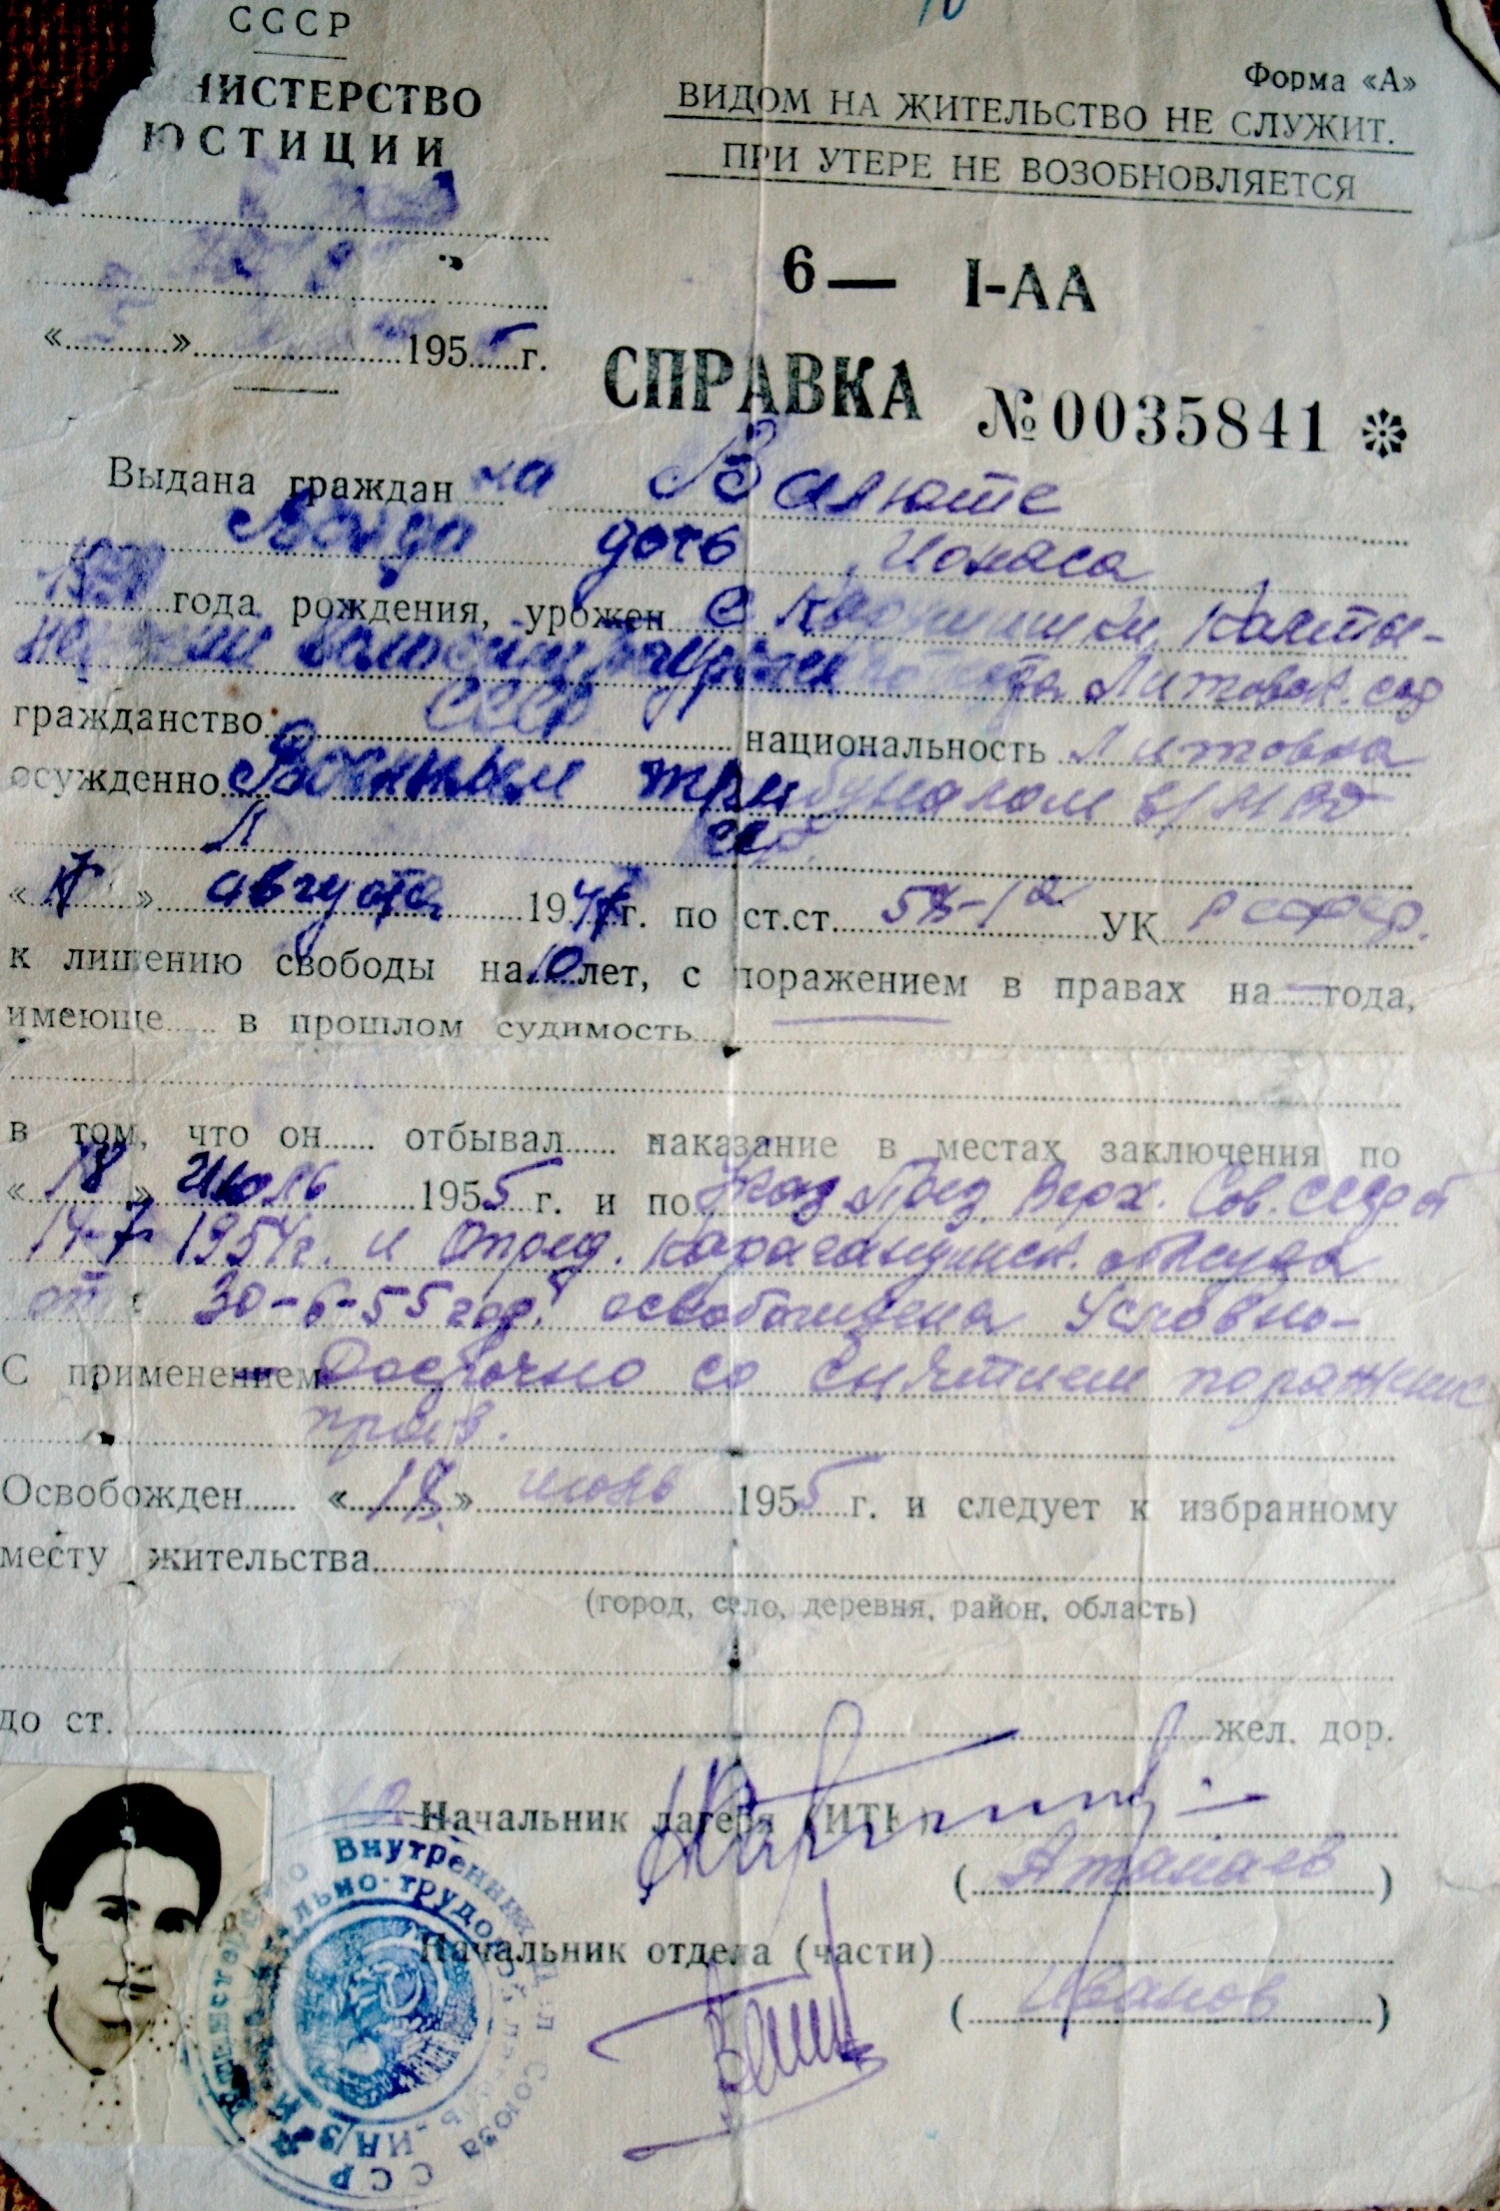 СССР
НИСТЕРСТВО
ЮСТИЦИИ
Форма «А»
ВИДОМ НА ЖИТЕЛЬСТВО НЕ СЛУЖИТ.
ПРИ УТЕРЕ НЕ ВОЗОБНОВЛЯЕТСЯ
6— I-АА
«...........»....................1955 г.
СПРАВКА №0035841
Выдана граждан ка Валюте
Ванда дочь Ионаса
года рождения, урожен с
Литовск. сср
гражданство СССР национальность Литовка
осужденно Военным трибуналом в/МВД
Л сср
« » августа 194 г. по ст.ст. 58-1а УК РСФСР.
к лишению свободы на 10 лет, с поражением в правах на — года,
имеюще...... в прошлом судимость
в том, что он...... отбывал...... наказание в местах заключения по
«18» Июль 1955 г. и по Указ През. Верх. Сов. СССР от
14-7-1954г. и Опред. Карагандинск. Облсуда
от 30-6-55 год. освобождена Условно-
С применением Досрочно со снятием поражение
прав.
Освобожден...... «18» июль 1955 г. и следует к избранному
месту жительства
(город, село, деревня, район, область)
до ст. жел. дор.
Начальник лагеря (ИТК)
(Атамаев)
Начальник отдела (части)
(Иванов)
Министерство Внутренних Дел Союза ССР